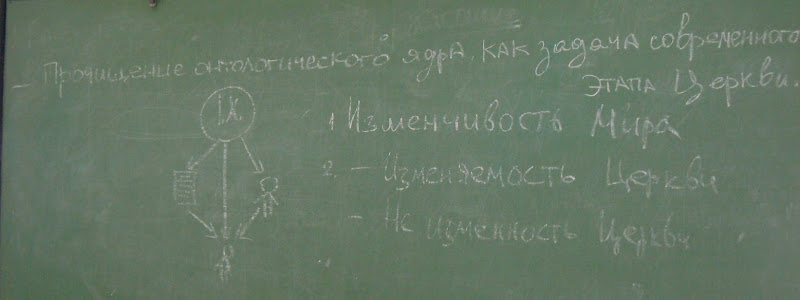 - Прочищение онтологического ядра, как задача современного
этапа Церкви.
IX
1 Изменчивость Мира
2. - Изменяемость Церкви
- Не изменность Церкви